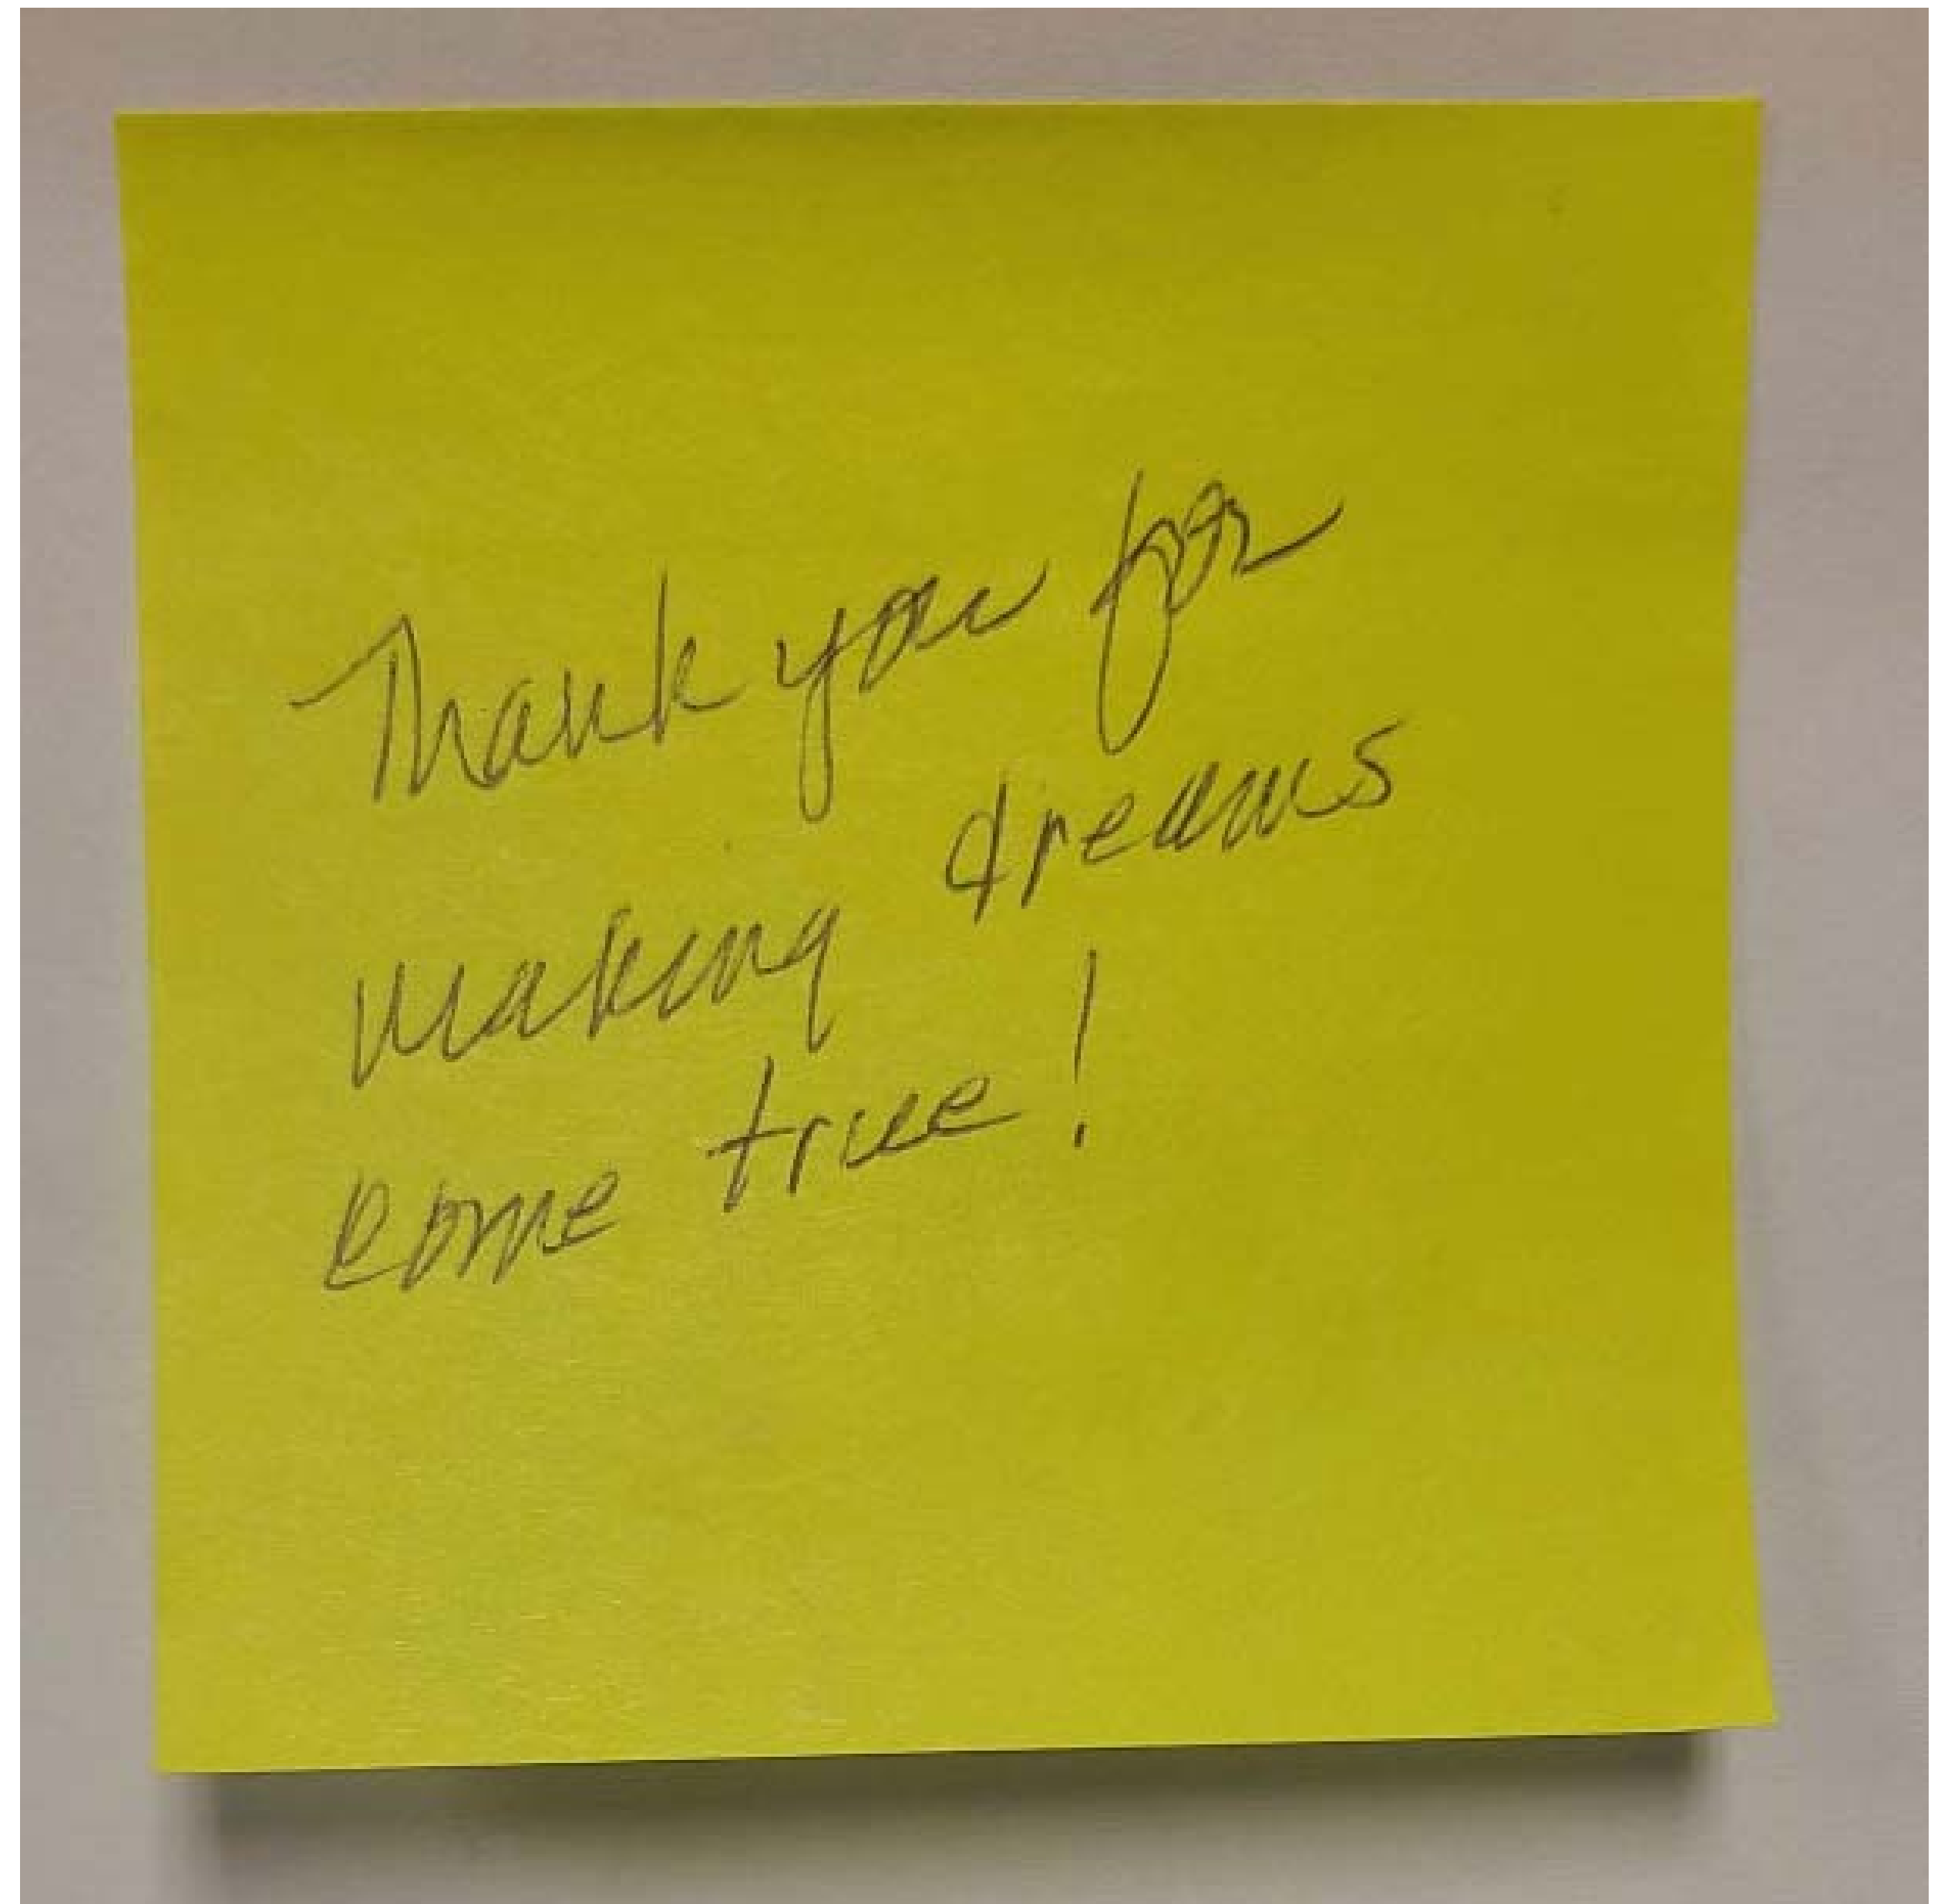 Thank you for
making dreams
come true!